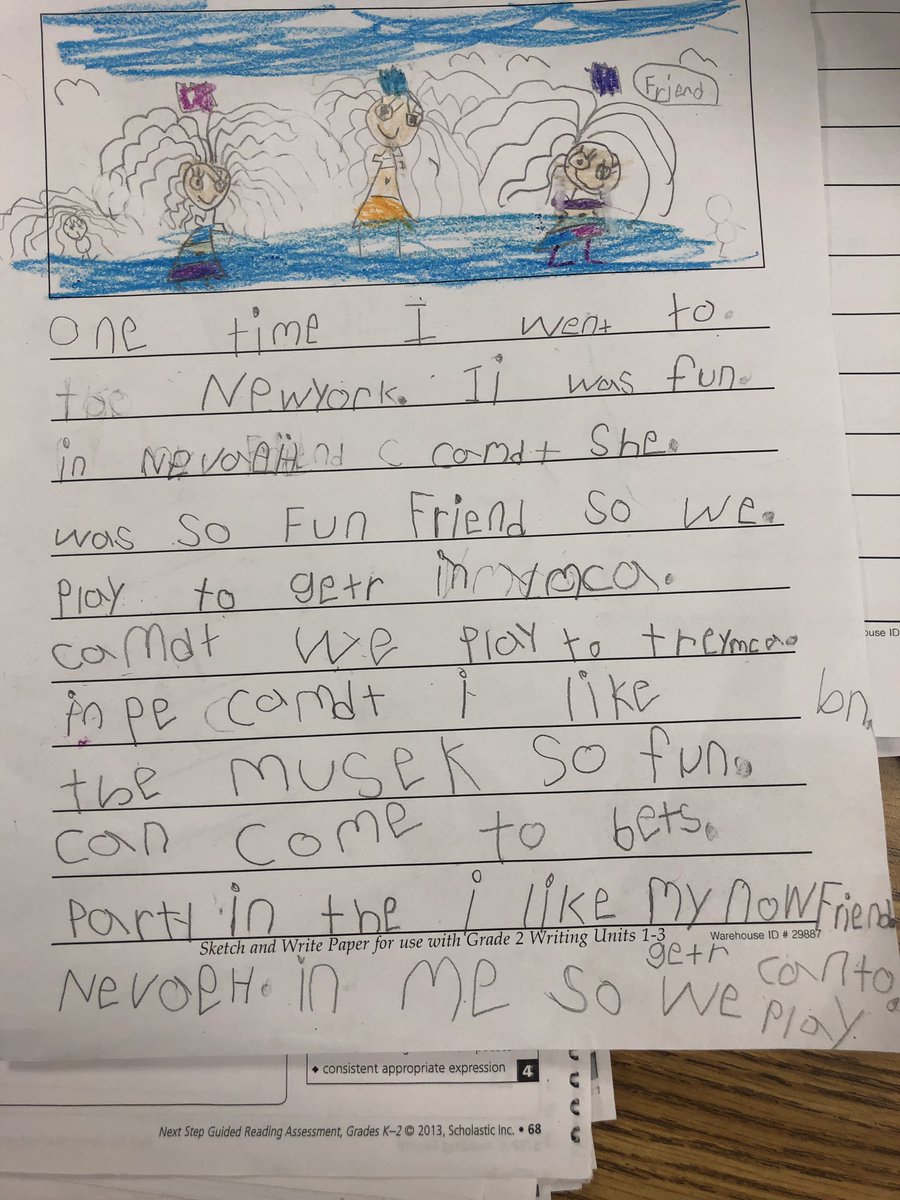 Friend
One time I went to.
the NewYork. Ii was fun.
in Nevaeh nd C camdt She.
was so Fun Friend so we.
Play to getr in ymca.
camdt we play to treymca.
in pe camdt i like on.
the musek so fun.
can come to bets.
Party in the i like my now Friend.
Sketch and Write Paper for use with Grade 2 Writing Units 1-3 Warehouse ID # 29887
Nevoeh. in me so we getr can to.
play
ouse ID
◆ consistent appropriate expression 4
Next Step Guided Reading Assessment, Grades K–2 © 2013, Scholastic Inc. • 68